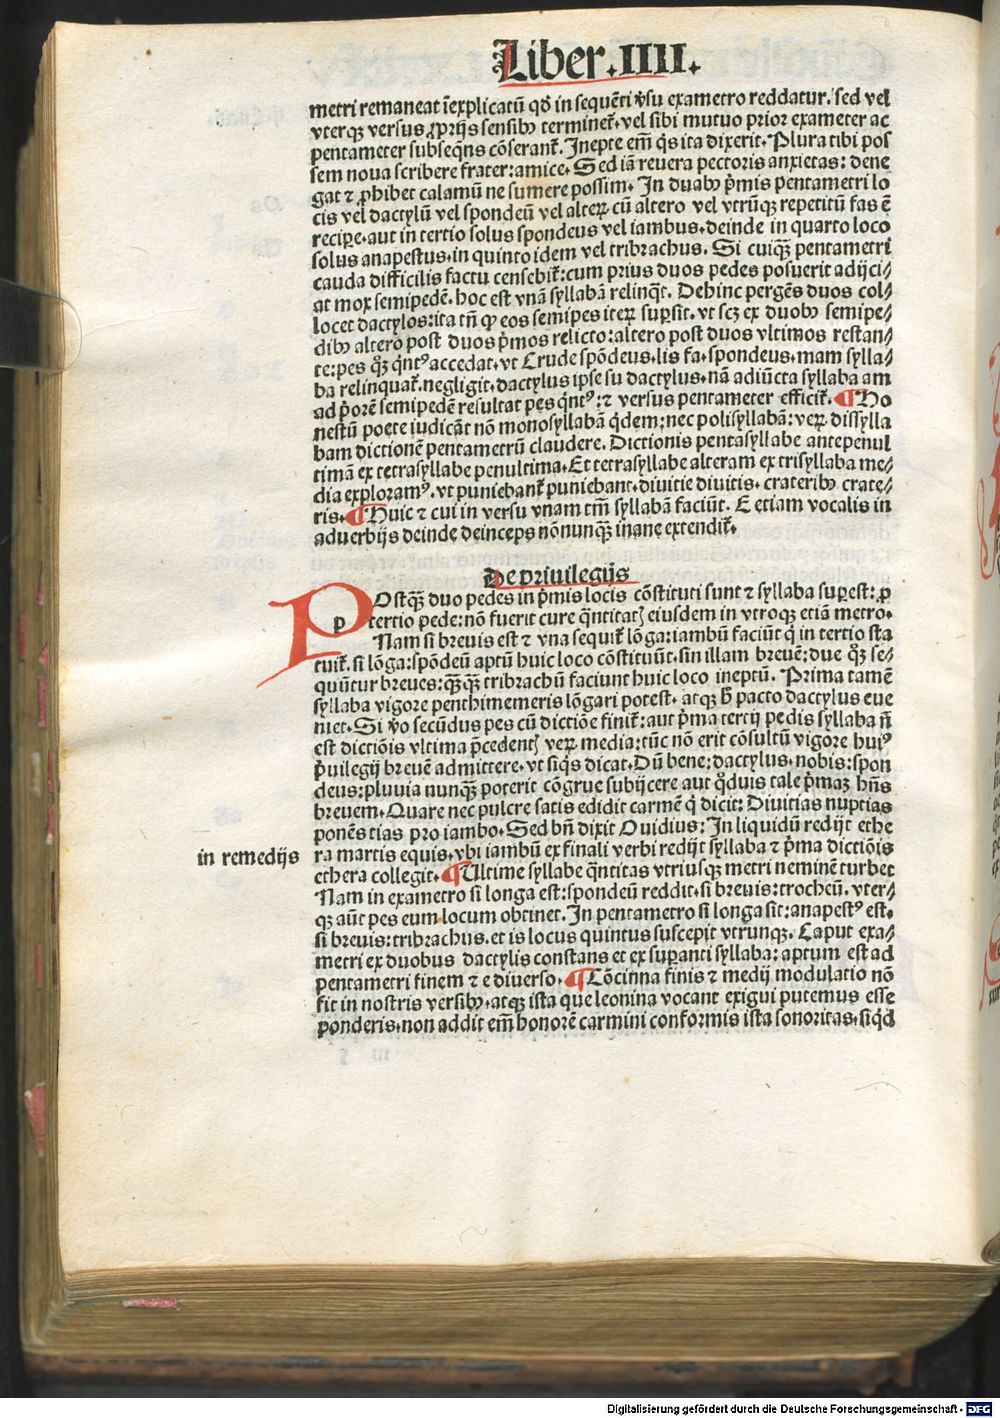 Liber .IIII.
metri remaneat īexplicatū qd̄ in sequēti v̄su exametro reddatur. sed vel
vterqꝫ versus ꝓprijs sensibꝰ terminet᷑. vel sibi mutuo prior exameter ac
pentameter subseq̄ns cōserant᷑. Inepte em̄ q̇s ita dixerit. Plura tibi pos
sem noua scribere frater: amice. Sed iā reuera pectoris anxietas: dene
gat ⁊ ꝓhibet calamū ne sumere possim. In duabꝰ p̄mis pentametri lo
cis vel dactylū vel spondeū vel alteꝝ cū altero vel vtrūqꝫ repetitū fas ē
recipe. aut in tertio solus spondeus vel iambus. deinde in quarto loco
solus anapestus. in quinto idem vel tribrachus. Si cuiqꝫ pentametri
cauda difficilis factu censebit᷑: cum prius duos pedes posuerit adijci/
at mox semipedē. hoc est vnā syllabā relinq̄t. Dehinc pergēs duos col/
locet dactylos: ita tn̄ ꝙ eos semipes iteꝝ suꝑsit. vt scꝫ ex duobꝰ semipe/
dibꝰ altero post duos p̄mos relicto: altero post duos vltimos restan/
te: pes qꝫ q̇ntꝰ accedat. vt Crude spōdeus. lis fa. spondeus. mam sylla/
ba relinquat᷑. negligit. dactylus ipse su dactylus. nā adiūcta syllaba am
ad p̄orē semipedē resultat pes q̇ntꝰ: ⁊ versus pentameter efficit᷑. ¶ Ho
nestū poete iudicāt nō monosyllabā q̇dem: nec polisyllabā: veꝝ dissylla
bam dictionē pentametrū claudere. Dictionis pentasyllabe antepenul
timā ex tetrasyllabe penultima. Et tetrasyllabe alteram ex trisyllaba me/
dia exploramꝰ. vt puniebant᷑ puniebant. diuitie diuitis. crateribꝰ crate/
ris. ¶ Huic ⁊ cui in versu vnam tm̄ syllabā faciūt. E etiam vocalis in
aduerbijs deinde deinceps nōnunqꝫ inane extendit᷑.
De priuilegijs
POstqꝫ duo pedes in p̄mis locis cōstituti sunt ⁊ syllaba suꝑest: ꝓ
p
tertio pede: nō fuerit cure q̄ntitatꝭ eiusdem in vtroqꝫ etiā metro.
Nam si breuis est ⁊ vna sequit᷑ lōga: iambū faciūt q̇ in tertio sta
tuit᷑. si lōga: spōdeū aptū huic loco cōstituūt. sin illam breuē: due qꝫ se/
quūtur breues: qꝫqꝫ tribrachū faciunt huic loco ineptū. Prima tamē
syllaba vigore penthimemeris lōgari potest. atqꝫ h̄ pacto dactylus eue
niet. Si v̄o secūdus pes cū dictiōe finit᷑: aut p̄ma tertij pedis syllaba n̄
est dictiōis vltima p̄cedentꝭ veꝝ media: tūc nō erit cōsultū vigore huiꝰ
p̄uilegij breuē admittere. vt siq̇s dicat. Dū bene: dactylus. nobis: spon
deus: pluuia nunqꝫ poterit cōgrue subijcere aut q̇duis tale p̄maꝫ hn̄s
breuem. Quare nec pulcre satis edidit carmē q̇ dicit: Diuitias nuptias
ponēs tias pro iambo. Sed bn̄ dixit Ouidius: In liquidū redijt ethe
in remedijs
ra martis equis. vbi iambū ex finali verbi redijt syllaba ⁊ p̄ma dictiōis
ethera collegit. ¶ Ultime syllabe q̄ntitas vtriusqꝫ metri neminē turbet
Nam in exametro si longa est: spondeū reddit. si breuis: trocheū. vter/
qꝫ aūt pes eum locum obtinet. In pentametro si longa sit: anapestꝰ est.
si breuis: tribrachus. et is locus quintus suscepit vtrunqꝫ. Caput exa/
metri ex duobus dactylis constans et ex suꝑanti syllaba: aptum est ad
pentametri finem ⁊ e diuerso. ¶ Cōcinna finis ⁊ medij modulatio nō
fit in nostris versibꝰ. atqꝫ ista que leonina vocant exigui putemus esse
ponderis. non addit em̄ honorē carmini conformis ista sonoritas. siq̇d
Digitalisierung gefördert durch die Deutsche Forschungsgemeinschaft - DFG